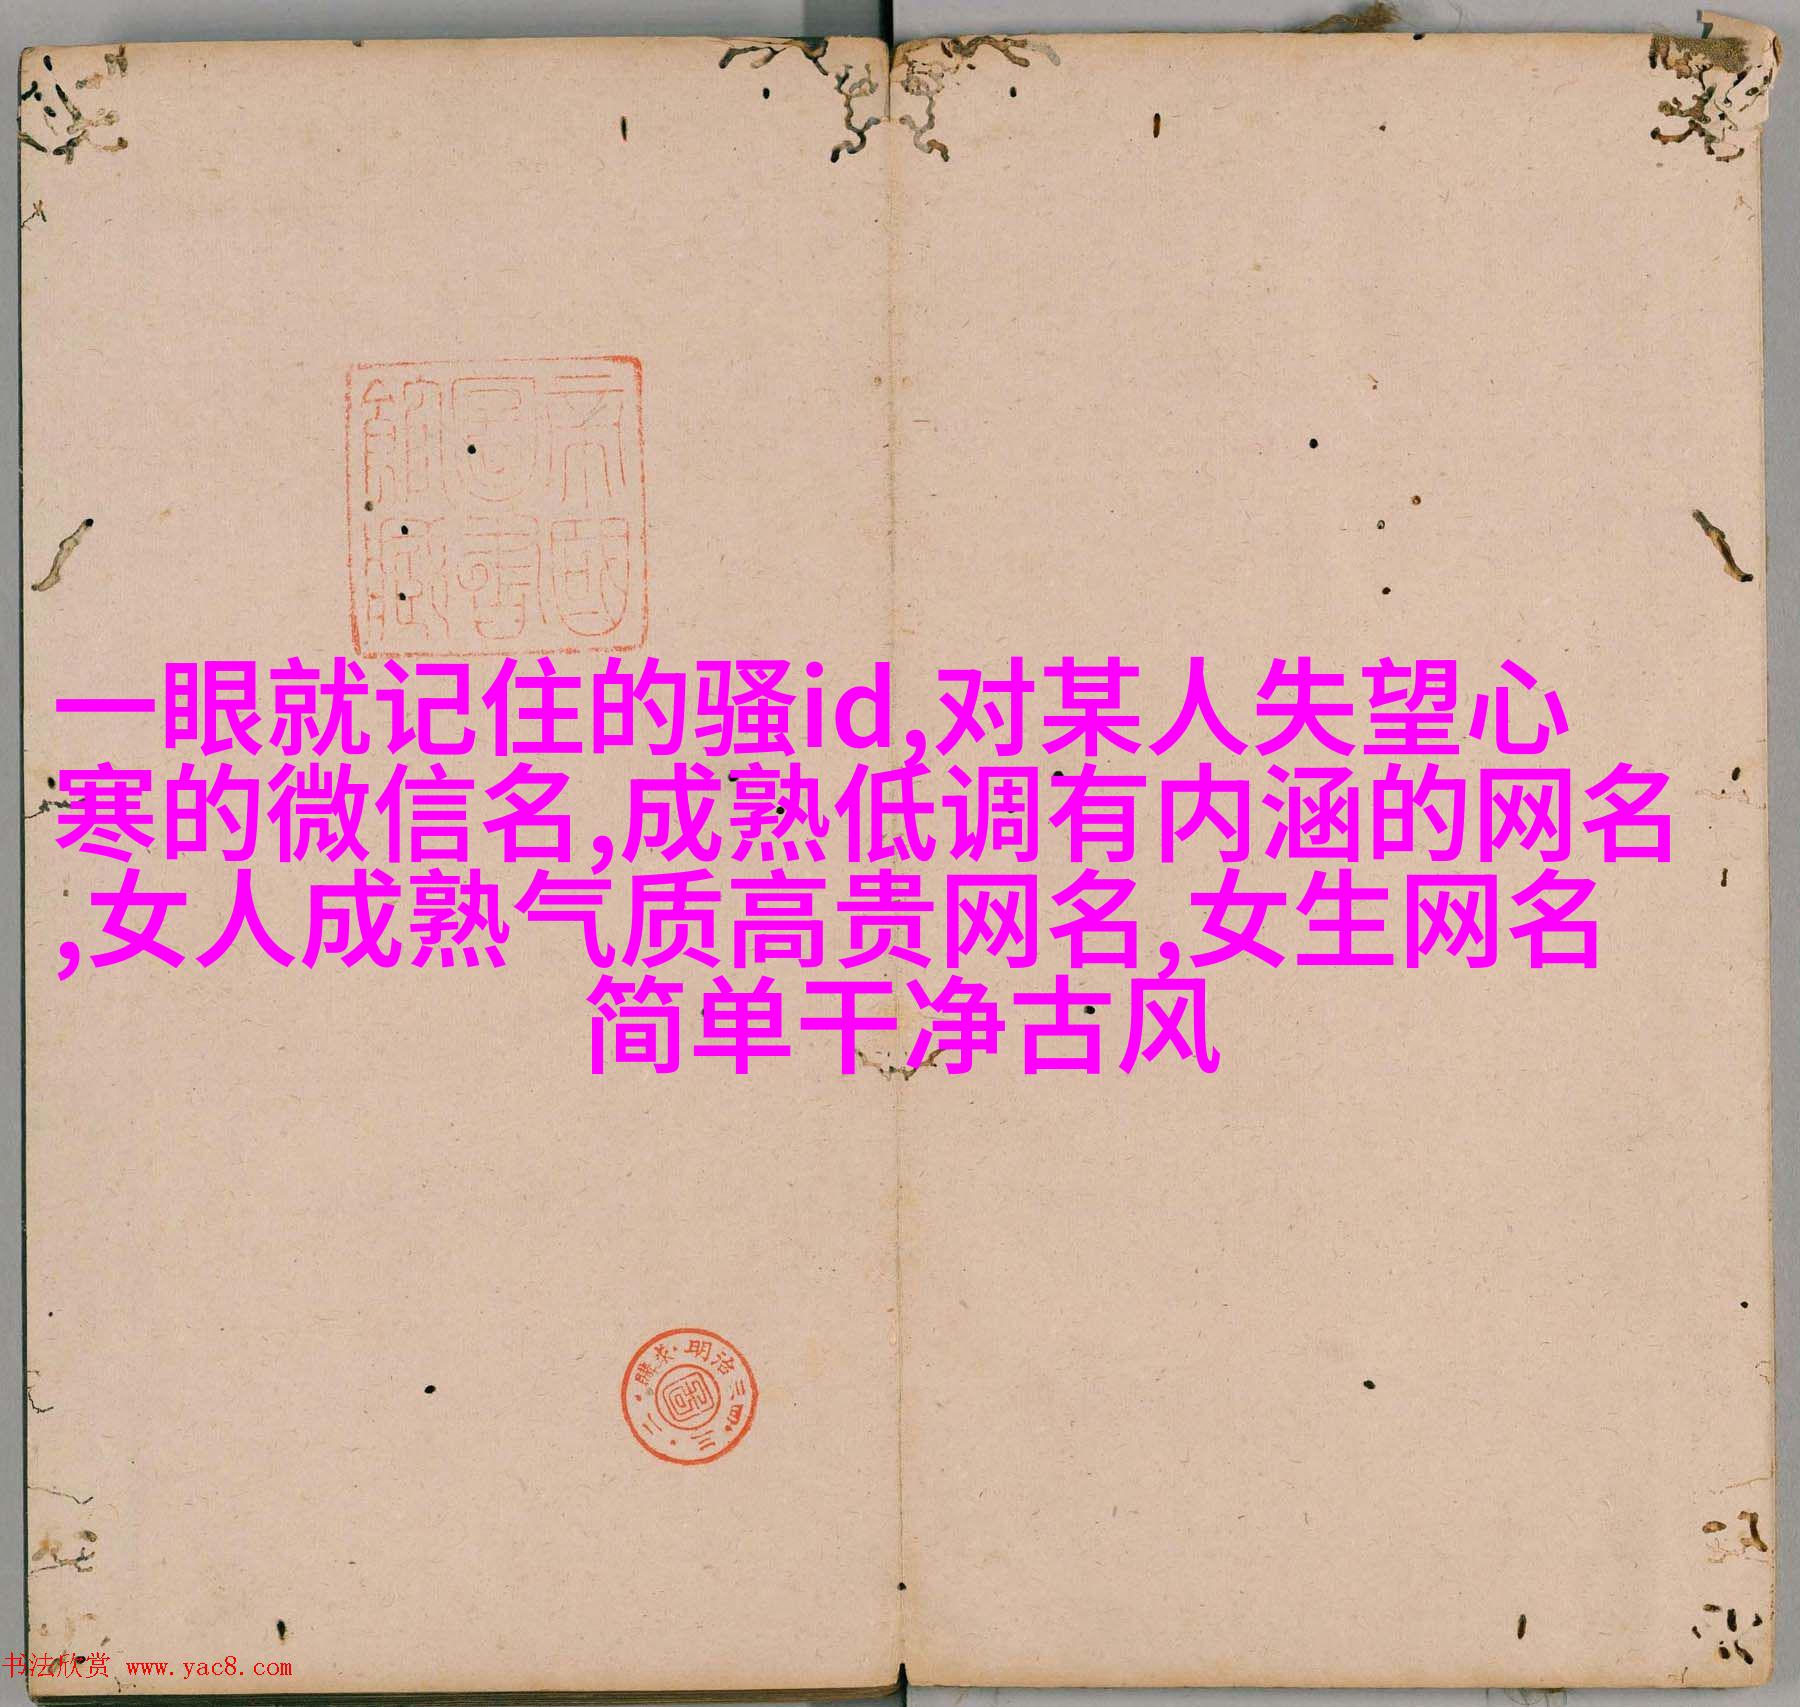 帝国
图书
馆藏
一眼就记住的骚id,对某人失望心
寒的微信名,成熟低调有内涵的网名
,女人成熟气质高贵网名,女生网名
简单干净古风
明治三四·三·二·購求·
书法欣赏 www.yac8.com